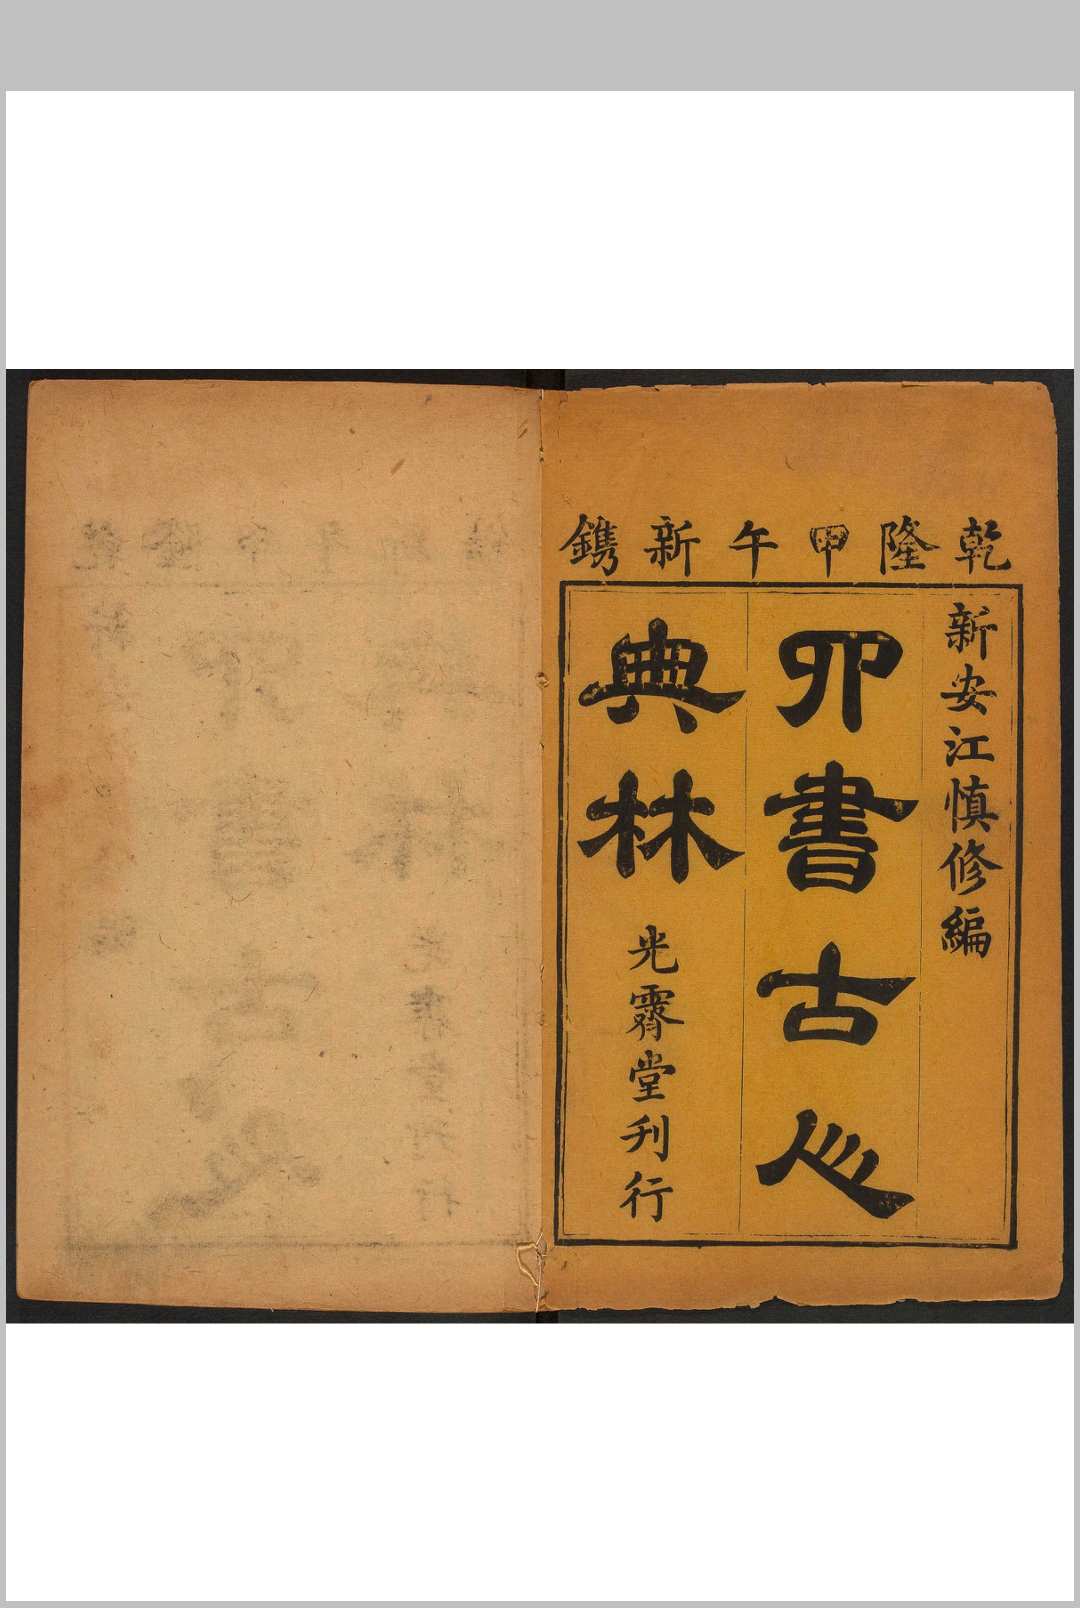 乾隆甲午新鐫
新安江慎修編
四書古人
典林
光霽堂刊行